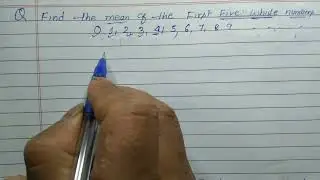 Q Find the mean of the First Five whole numbers
0, 1, 2, 3, 4, 5, 6, 7, 8, 9